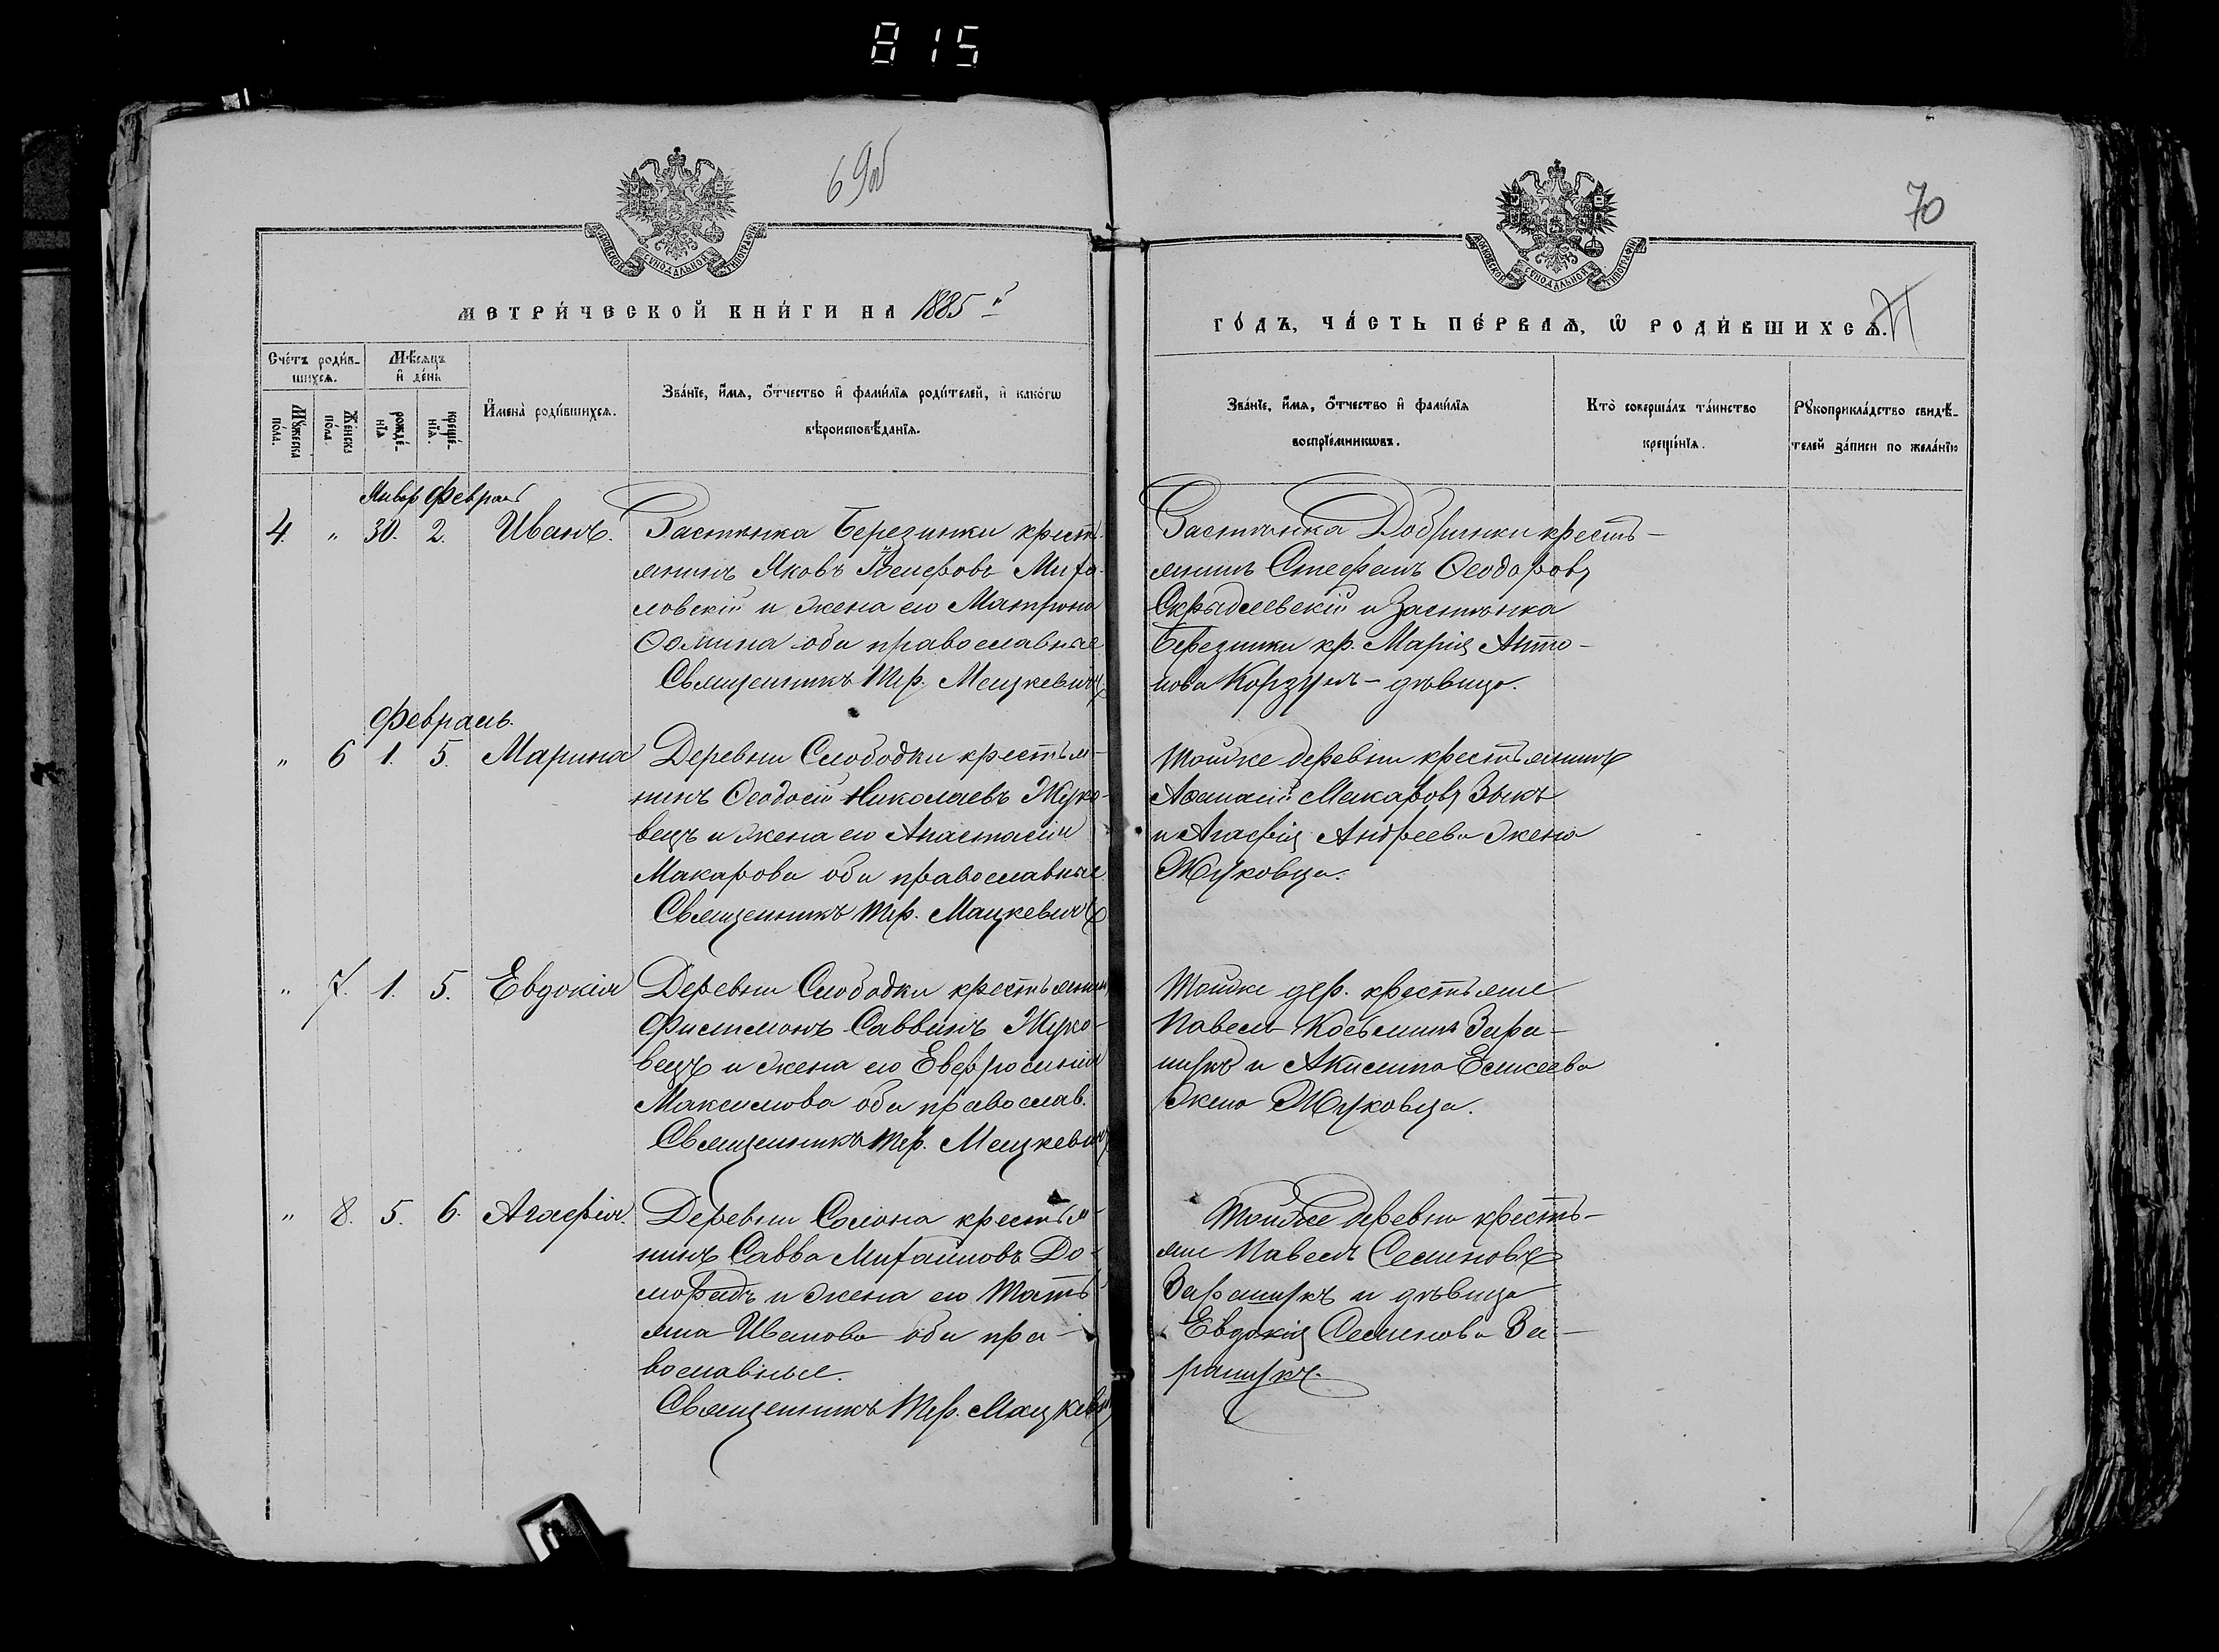 815
69об
70
МОСКОВСКОЙ СѴНОДАЛЬНОЙ ТИПОГРАФІИ
МОСКОВСКОЙ СѴНОДАЛЬНОЙ ТИПОГРАФІИ
МЕТРИ́ЧЕСКОЙ КНИ́ГИ НА 1885й
ГО́ДЪ, ЧА́СТЬ ПЕ́РВАѦ, Ѡ РОДИ́ВШИХСѦ.
Сче́тъ роди́в-
шихсѧ.
Мꙋжеска по́ла.
Же́нска по́ла.
Мѣ́сѧцъ и де́нь
рожде́-нїѧ
креще́-нїѧ.
И҆мена̀ роди́вшихсѧ.
Зва́нїе, и҆́мѧ, ѻ҆́тчество и҆ фамѝлїѧ роди́телей, и҆ како́гѡ
вѣроисповѣ́данїѧ.
Зва́нїе, и҆́мѧ, ѻ҆́тчество и҆ фами́лїѧ
воспрїе́мникѡвъ.
Кто̀ соверша́лъ та́инство
креще́нїѧ.
Рꙋкоприкла́дство свидѣ́-
телей за́писи по жела́нїю
Январ Февраль
4. " 30. 2. Иванъ.
Застѣнка Березинки кресть-
янинъ Яковъ
ловскій и жена его Матрона
Ѳомина оба православные
Священникъ Мацкевичъ
Застѣнка Добринки кресть-
янинъ Стефанъ Ѳеодоровъ
и Застѣнка
Березинки кр. Марія Анто-
нова Корзунъ - дѣвица.
Февраль.
" 6 1. 5. Марина
Деревни Слободки крестья-
нинъ Ѳеодосій Николаевъ Жуко-
вецъ и жена его Анастасія
Макарова оба православные.
Священникъ Мацкевичъ
Тойже деревни крестьянинъ
Аѳанасій Макаровъ Зыкъ
и Агафія Андреева жена
Жуковца.
" 7. 1. 5. Евдокія
Деревни Слободки крестьянинъ
Филимонъ Саввинъ Жуко-
вецъ и жена его Евфросинія
Максимова оба православ.
Священникъ Мацкевичъ
Тойже дер. крестьяне
Павелъ Косьминъ
и Акилина Елисеева
жена Жуковца.
" 8. 5. 6. Агафія.
Деревни Солона крестья-
нинъ Савва Михайловъ До-
морадъ и жена его Тать-
яна Иванова оба пра-
вославные.
Священникъ Мацкевич
Тойже деревни кресть-
яне Павелъ Семеновъ
и дѣвица
Евдокія Семенова